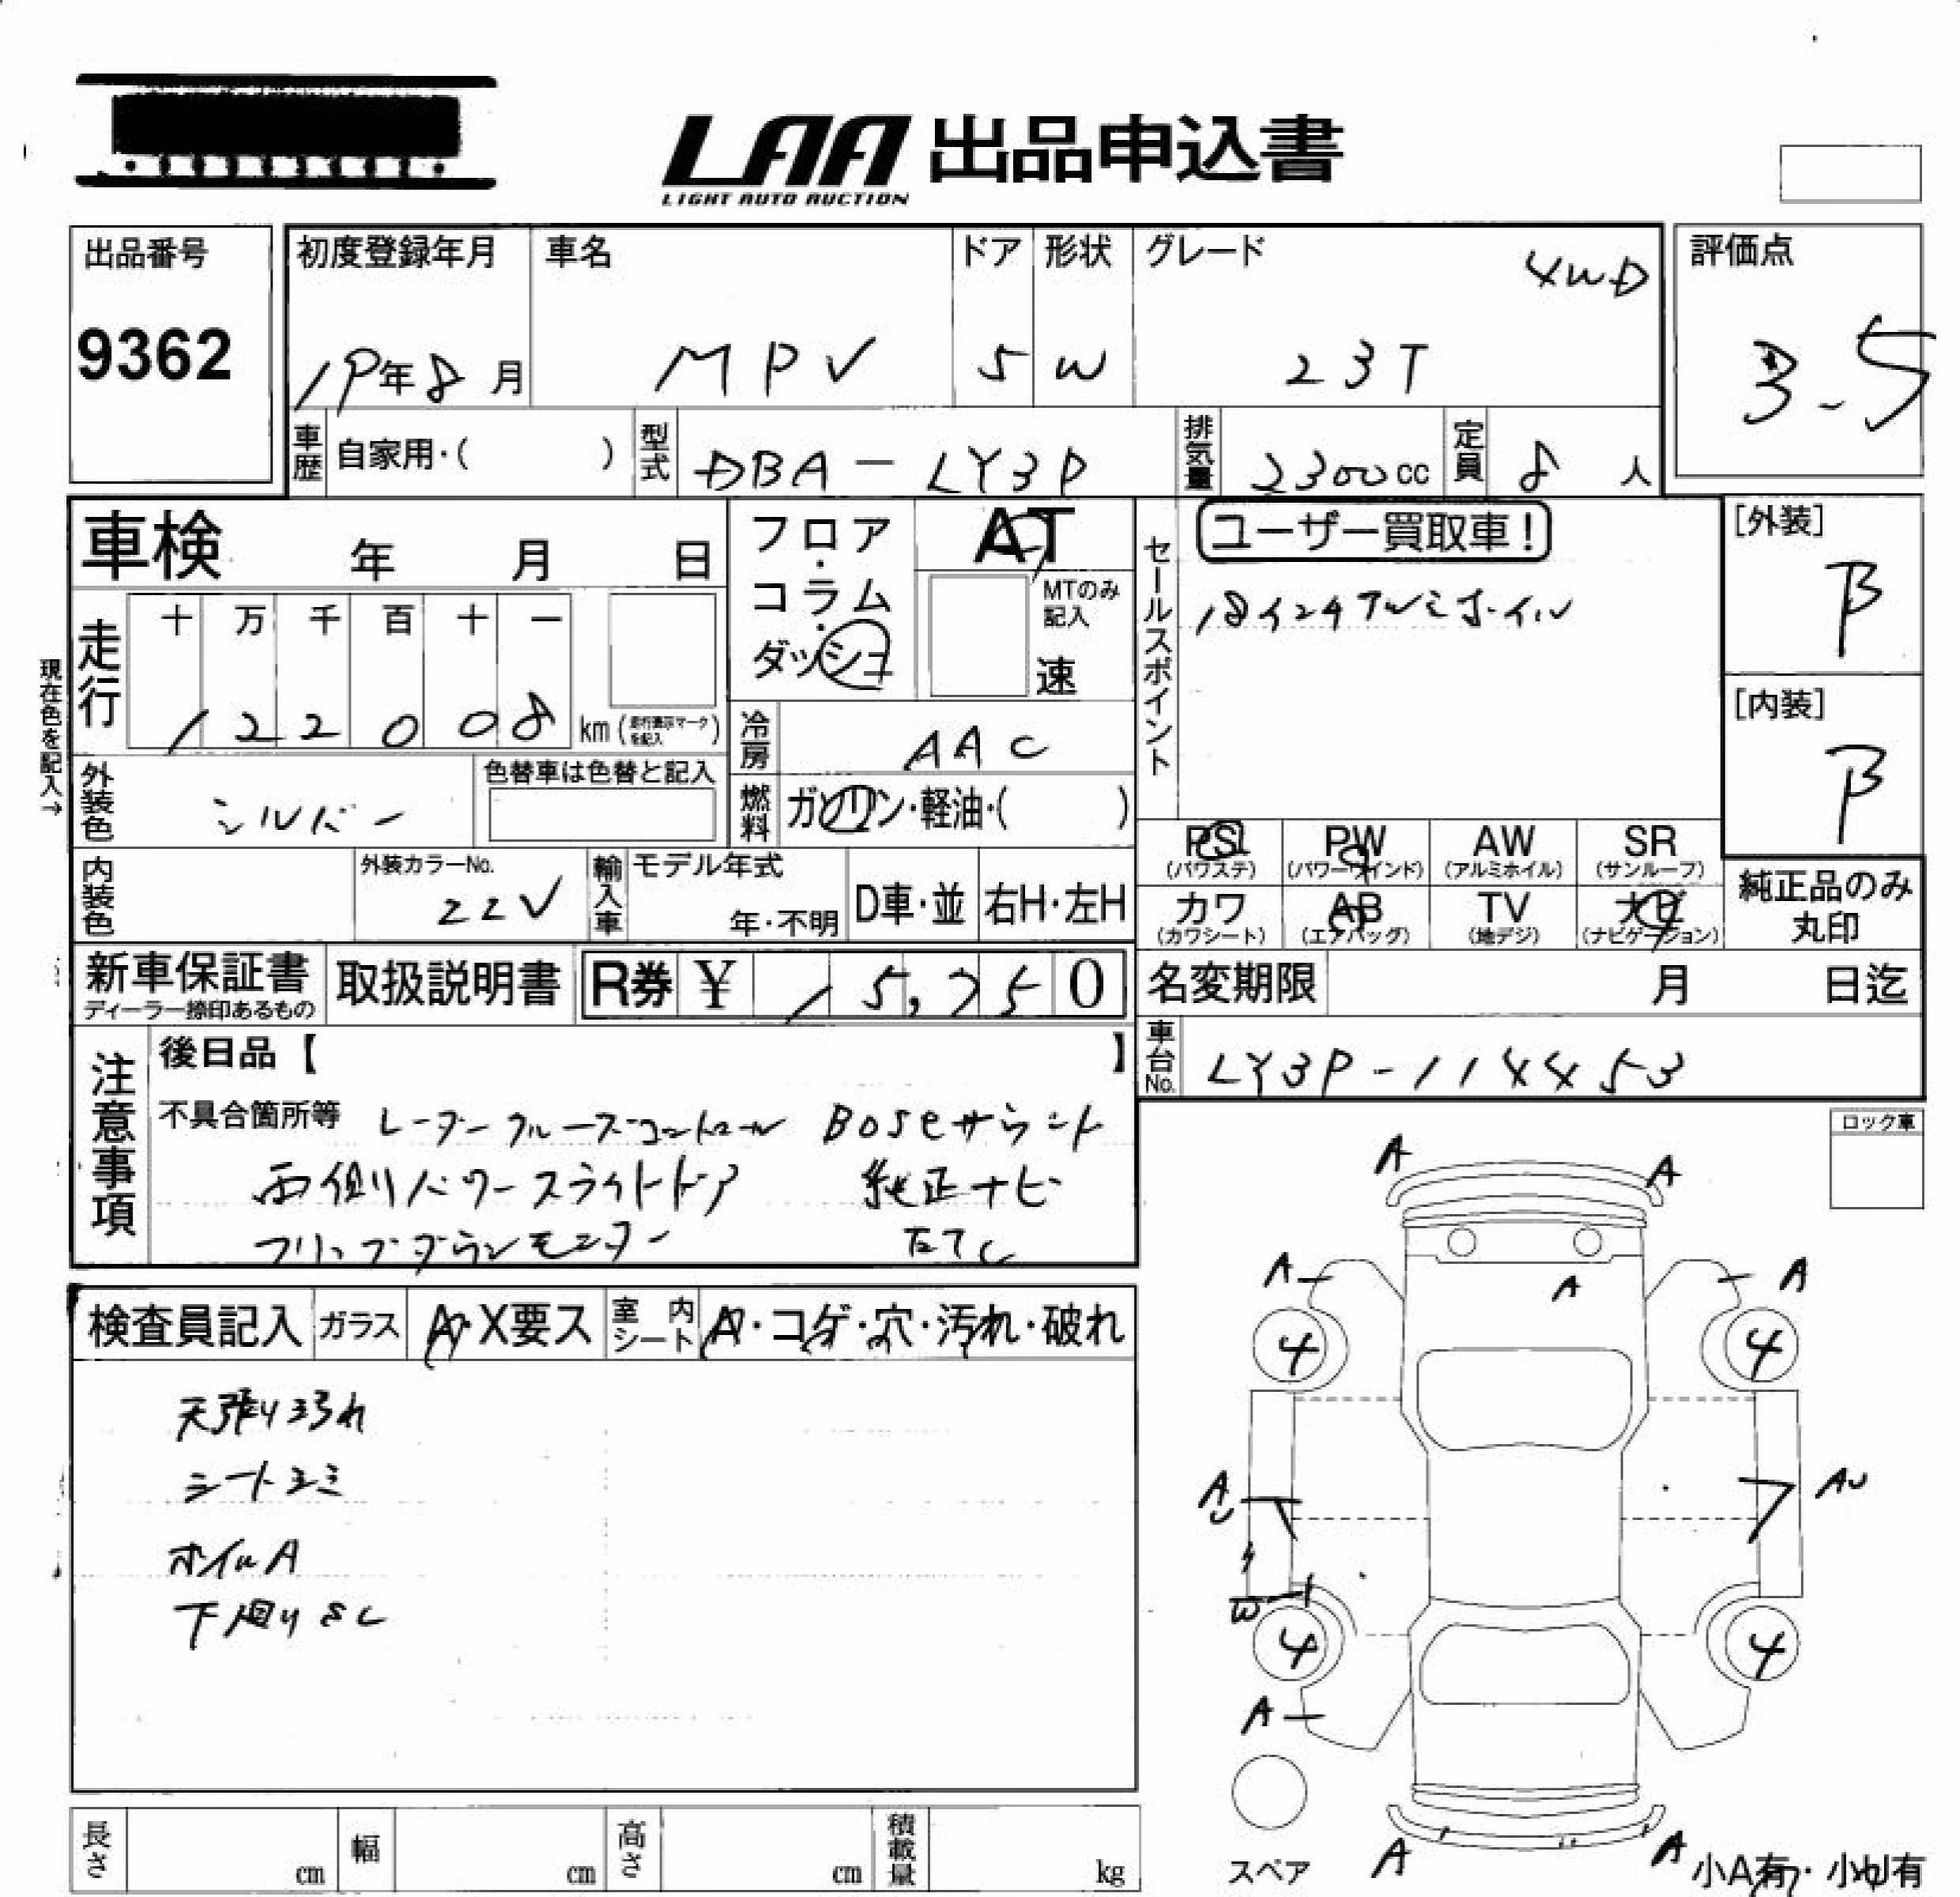 LAA 出品申込書
LIGHT AUTO AUCTION
出品番号
9362
初度登録年月
19年8月
車名
MPV
ドア
5
形状
W
グレード
4WD
23T
評価点
3.5
車歴 自家用・( )
型式 DBA-LY3P
排気量 2300cc
定員 8人
車検 年 月 日
フロア・コラム・ダッシュ
AT
MTのみ記入
速
セールスポイント
ユーザー買取車!
18インチアルミホイル
[外装]
B
[内装]
B
現在色を記入→
走行 十 万 千 百 十 一
122008 km (走行表示マークを記入)
冷房 AAC
外装色 シルバー
色替車は色替と記入
燃料 ガソリン・軽油・( )
内装色
外装カラーNo.
22V
輸入車 モデル年式
年・不明
D車・並 右H・左H
PS (パワステ)
PW (パワーウインド)
AW (アルミホイル)
SR (サンルーフ)
カワ (カワシート)
AB (エアバッグ)
TV (地デジ)
ナビ (ナビゲーション)
純正品のみ丸印
新車保証書
ディーラー捺印あるもの
取扱説明書
R券 ¥ 15,750
名変期限 月 日迄
車台No. LY3P-114453
注意事項
後日品【 】
不具合箇所等 レーダークルーズコントロール BOSEサウンド
両側パワースライドドア 純正ナビ
フリップダウンモニター ETC
ロック車
検査員記入 ガラス A・X要ス 室内シート A・コゲ・穴・汚れ・破れ
天張りヨゴれ
シートシミ
ホイルA
下廻りSC
A A
A A A
4 4
AU AU
W
4 4
A
スペア
A A
小A有・小U有
長さ cm 幅 cm 高さ cm 積載量 kg